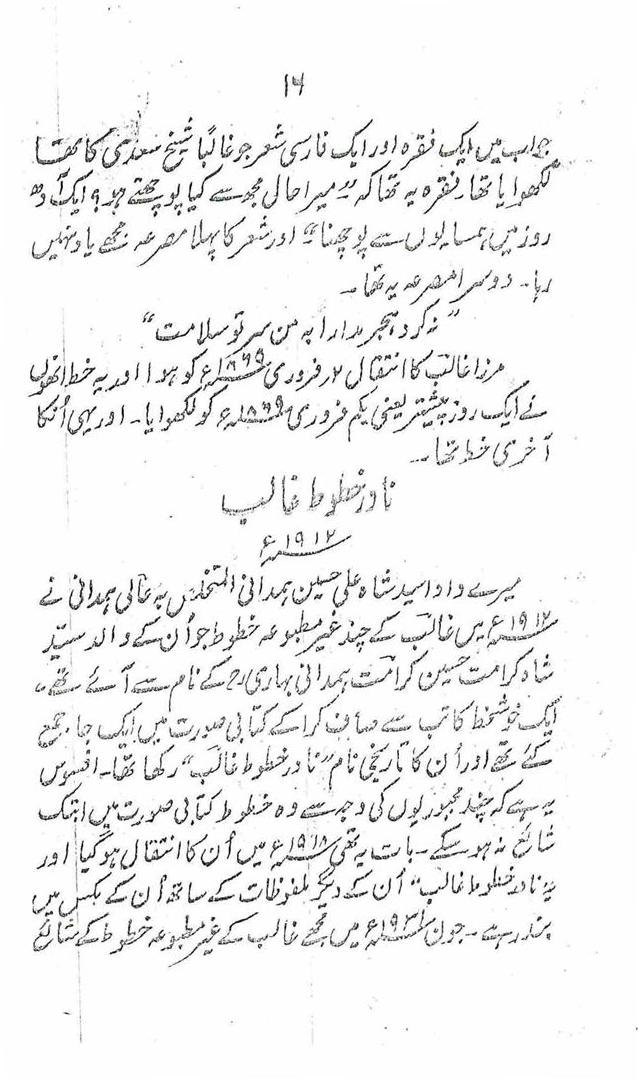 ۱۶
جواب میں ایک فقرہ اور ایک فارسی شعر جو غالباً شیخ سعدی کا تھا
لکھوایا تھا۔ فقرہ یہ تھا کہ "میرا حال مجھ سے کیا پوچھتے ہو؟ ایک آدھ
روز میں ہمسایوں سے پوچھنا" اور شعر کا پہلا مصرعہ مجھے یاد نہیں
رہا۔ دوسرا مصرعہ یہ تھا۔
"نہ کرد ہجر مدارا بہ من سر تو سلامت"
مرزا غالب کا انتقال ۲ر فروری ۱۸۶۹ء کو ہوا اور یہ خط انھوں
نے ایک روز پیشتر یعنی یکم فروری ۱۸۶۹ء کو لکھوایا۔ اور یہی اُنکا
آخری خط تھا۔
نادر خطوط غالب
۱۹۱۲ء
میرے دادا سید شاہ علی حسین ہمدانی المتخلص بہ عالی ہمدانی نے
۱۹۱۲ء میں غالب کے چند غیر مطبوعہ خطوط جو اُن کے والد سید
شاہ کرامت حسین کرامت ہمدانی بہاری رح کے نام سے آئے تھے،
ایک خوشخط کاتب سے صاف کرا کے کتابی صورت میں ایک جا جمع
کئے تھے اور اُن کا تاریخی نام "نادر خطوط غالب" رکھا تھا۔ افسوس
یہ ہے کہ چند مجبوریوں کی وجہ سے وہ خطوط کتابی صورت میں ابتک
شائع نہ ہو سکے۔ بات یہ تھی ۱۹۱۸ء میں اُن کا انتقال ہو گیا اور
یہ نادر خطوط غالب" اُن کے دیگر ملفوظات کے ساتھ اُن کے بکس میں
بند رہے۔ جون ۱۹۳۱ء میں مجھے غالب کے غیر مطبوعہ خطوط کے شائع